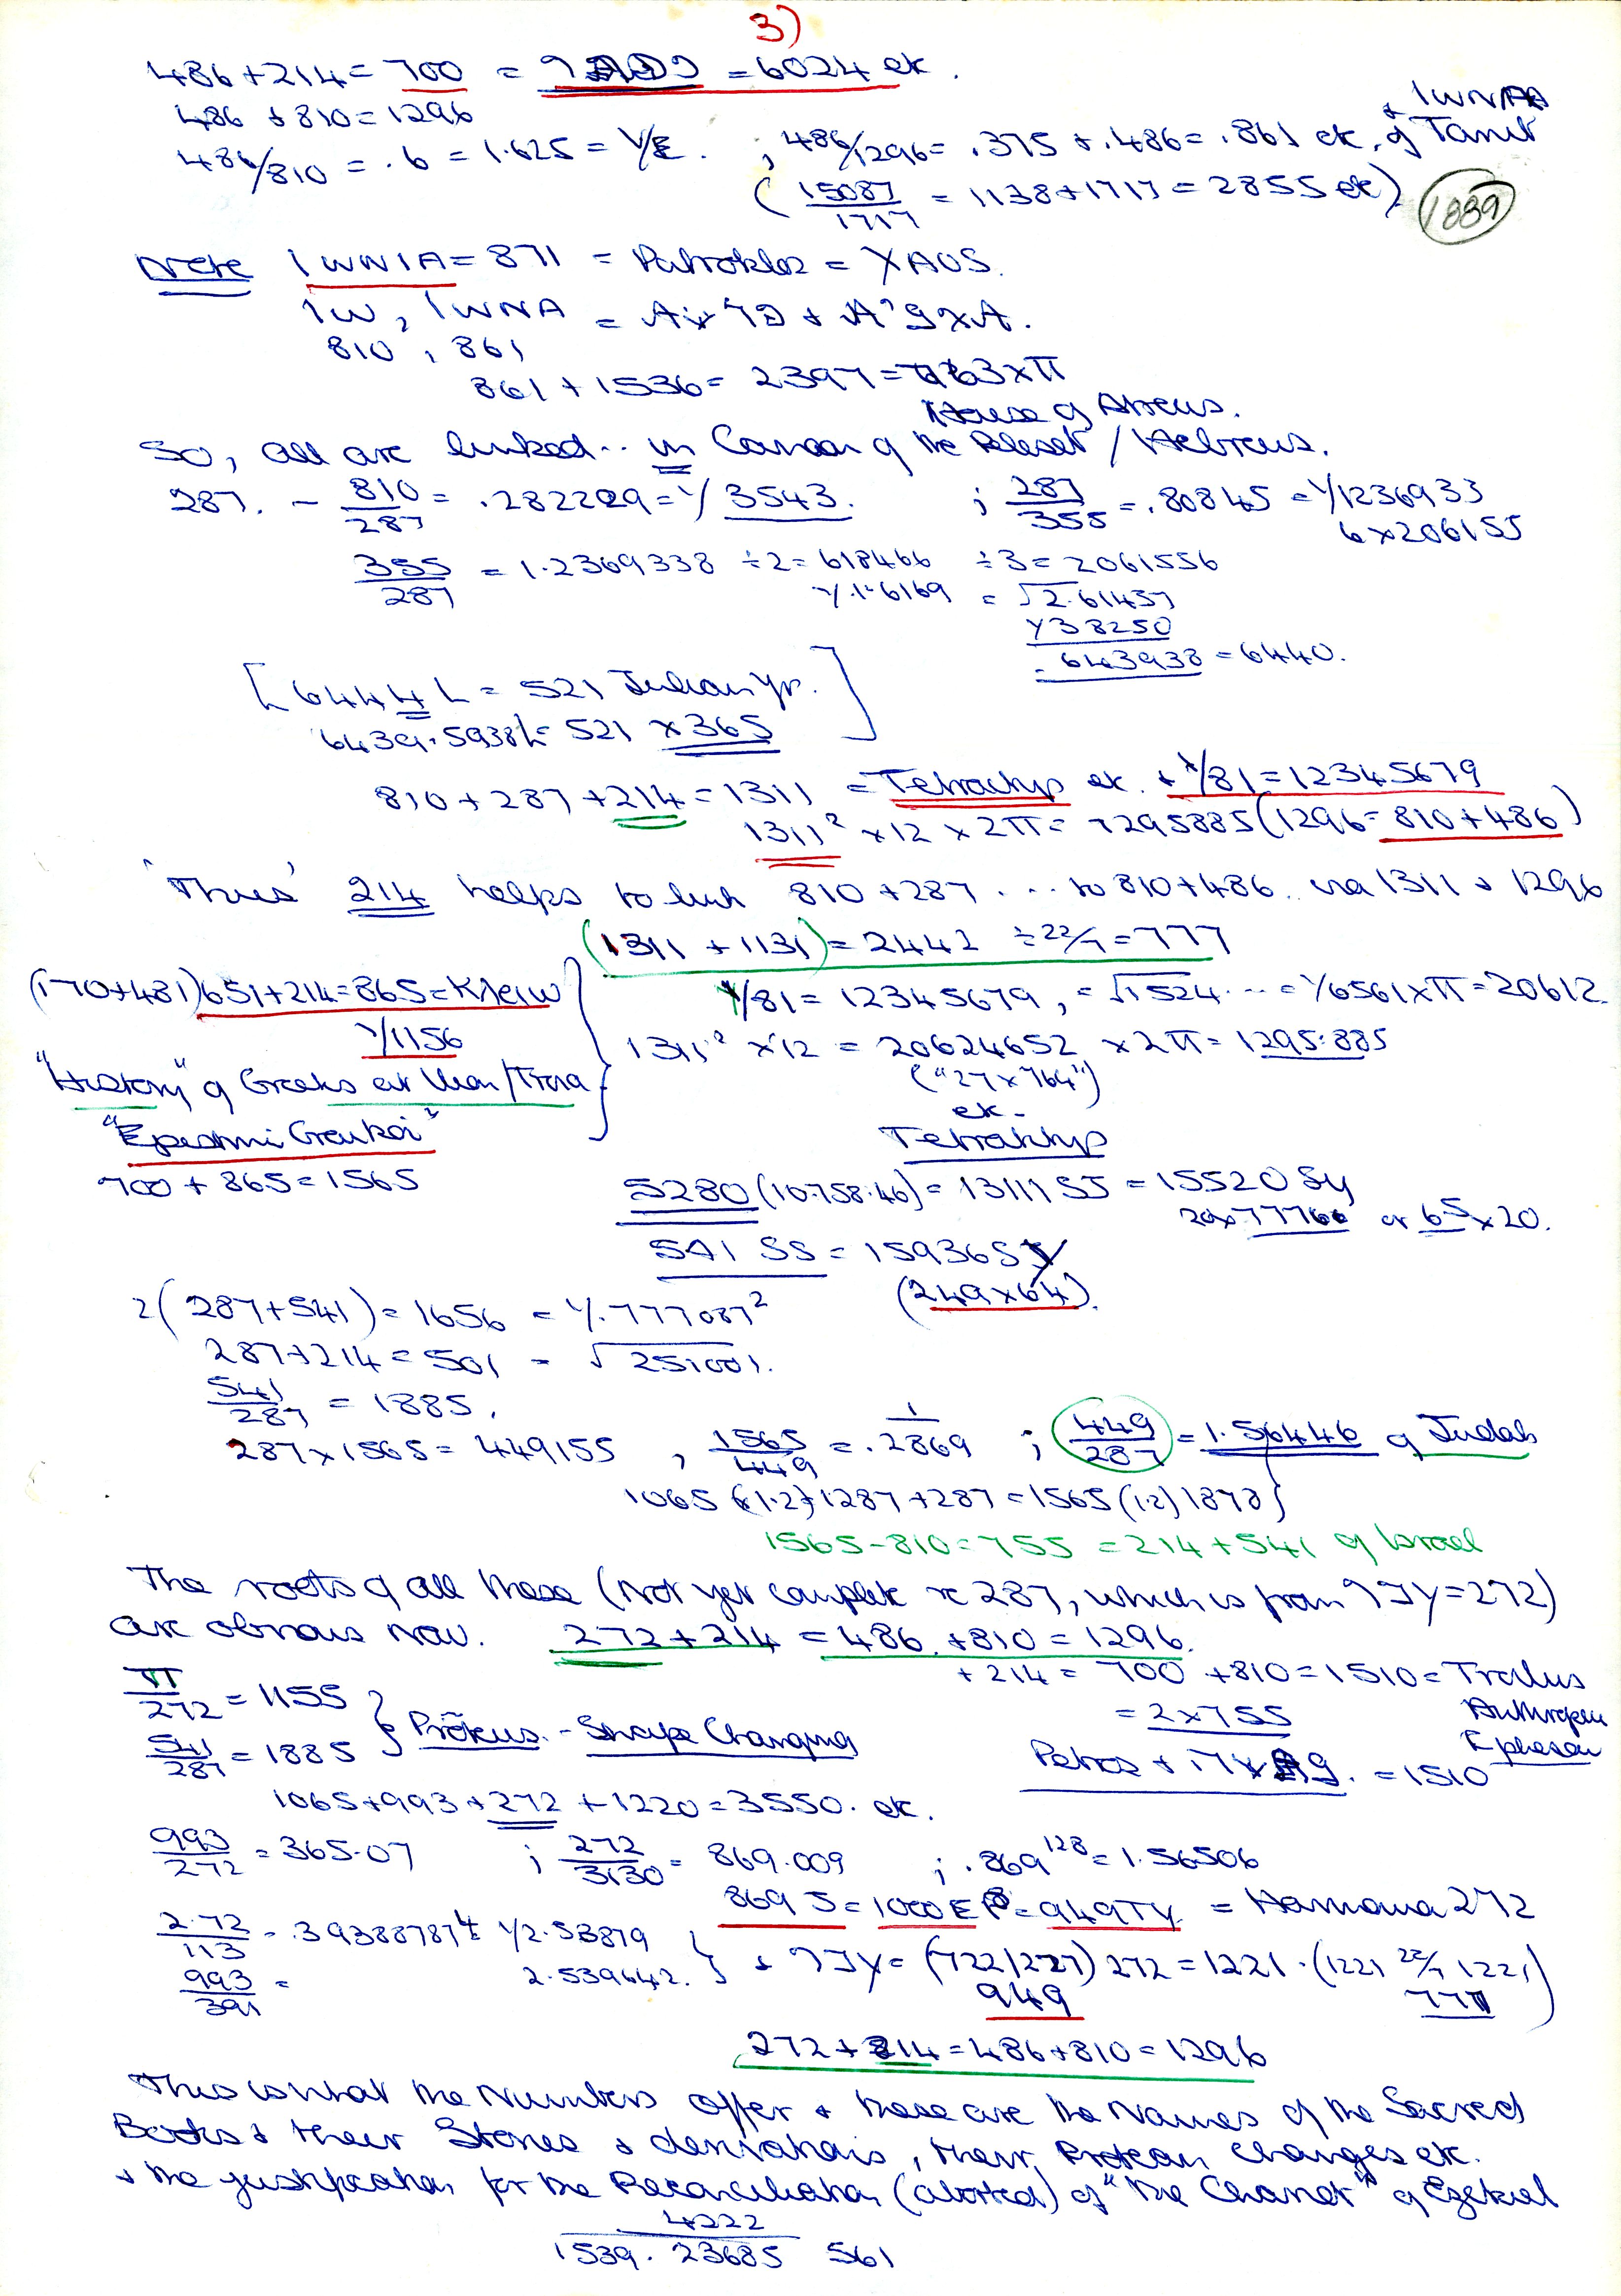 3)
486+214 = 700 = = 6024 ek.
486 + 810 = 1296
486/810 = .6 = 1.625 = 1/E. ; 486/1296 = .375 + .486 = .861 ek. of Tanit
+ IWNA
( 15087/1717 = 1138+1717 = 2855 ek)
1889
Note IWNIA = 871 = Patroklos = XAOS.
IW, IWNA =
810, 861
861 + 1536 = 2397 = 763 x π
House of Atreus.
So, all are linked.. in Canaan of the Peleset / Hebrews.
287. - 810/287 = .282229 = 1/3543. ; 287/355 = .80845 = 1/1236933
6x206155
355/287 = 1.2369338 ÷2 = 618466 ÷3 = 2061556
1/1.6169 = √2.61437
1/38250
.643938 = 6440.
[6444 L = 521 Julian yr.]
6439.5938L = 521 x 365
810 + 287 + 214 = 1311 = Tetraktys ek. + 1/81 = 12345679
1311² x 12 x 2π = 1295885 (1296 = 810+486)
'Thus' 214 helps to link 810+287 ... to 810+486. via 1311 + 1296
(1311 + 1131) = 2442 ÷ 22/7 = 777
(170+481) 651+214 = 865 = Kleiw
1/81 = 12345679, = √1524... = 1/6561 x π = 20612.
1/1156
1311² x 12 = 20624652 x 2π = 1295.885
("27x764")
"History" of Greeks at Ilion/Troia
ek.
"Epeshmi Graikoi"
Tetraktys
700 + 865 = 1565
5280 (10.758.46) = 13111 SS = 15520 Sy
20x77760 or 6⁵x20.
541 SS = 15936 Sy
(249x64).
2(287+541) = 1656 = 1/.777087²
287+214 = 501 = √251001.
541/287 = 1885,
287x1565 = 449155 , 1565/449 = 1/.2869 ; 449/287 = 1.56446 of Judah
1065 (x1.2) 1287+287 = 1565 (1.2) 1878
1565-810 = 755 = 214+541 of Israel
The roots of all these (Not yet complete re 287, which is from = 272)
are obvious now. 272+214 = 486. +810 = 1296.
+214 = 700 +810 = 1510 = Tralus
π/272 = 1155
= 2x755
541/287 = 1885 } Proteus. - Shape Changing
Ephesou
Petros + = 1510
1065+993+272+1220 = 3550. ek.
993/272 = 365.07 ; 272/3130 = 869.009 ; .869¹²⁸ = 1.56506
869 S = 1000 E = 949 Ty. = Harmonia 272
2.72/113 = .39388787⁴ = 1/2.53879
993/391 = 2.539642. } + = (722/227) 272 = 1221. (1221 22/7 1221)
949
777
272+214 = 486+810 = 1296
This is what the Numbers offer + these are the Names of the Sacred
Books + their Stories + derivations, their Protean changes ek.
+ the justification for the Reconciliation (aborted) of "the Chariot" of Ezekiel
4222
1539. 23685 561